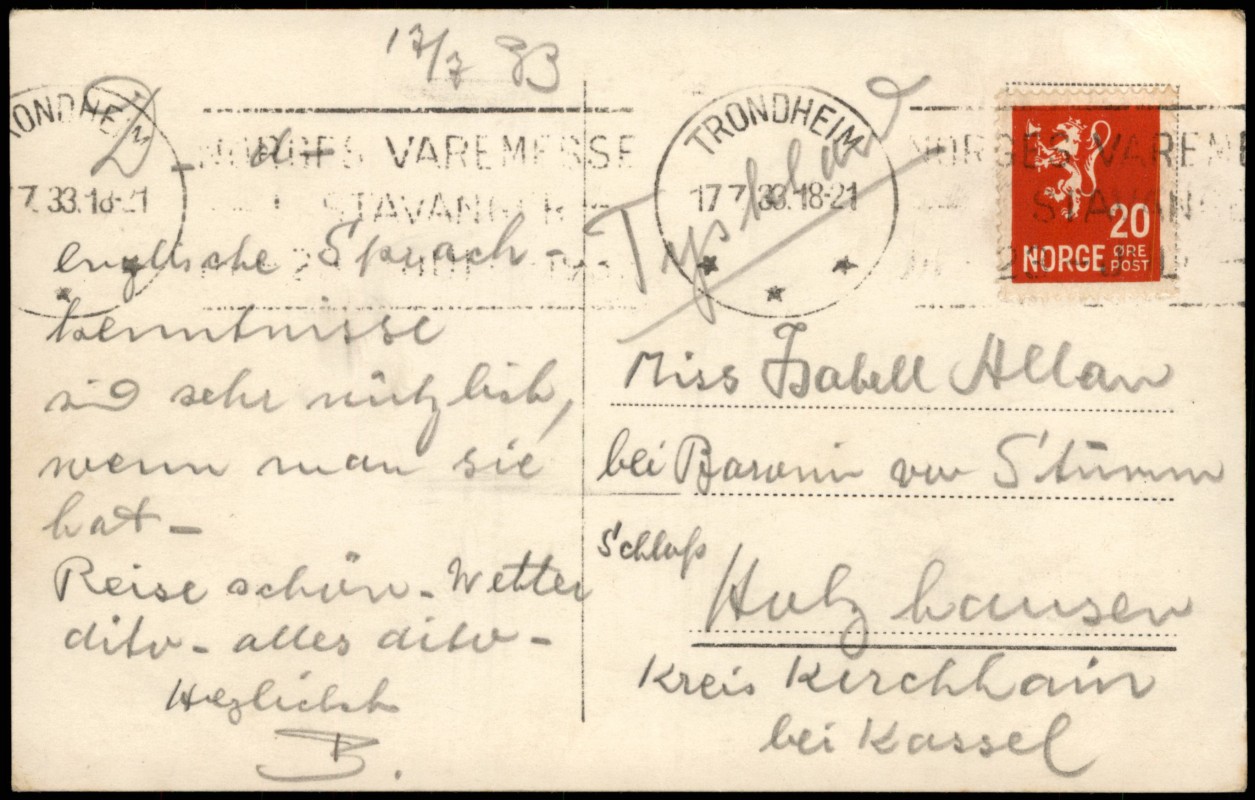 17/7 33
TRONDHEIM
17.7.33.18-21
NORGES VAREMESSE
STAVANGER
D
englische Sprach-
kenntnisse
sind sehr nützlich,
wenn man sie
hat-
Reise schön- Wetter
dito- alles dito-
Herzlichst
B.
TRONDHEIM
17 7.33.18-21
NORGES VAREME
STAVANGE
20
NORGE ØRE
POST
Tyskland
Miss Isabell Allan
bei Baronin von Stumm
Schloß
Holzhausen
Kreis Kirchhain
bei Kassel